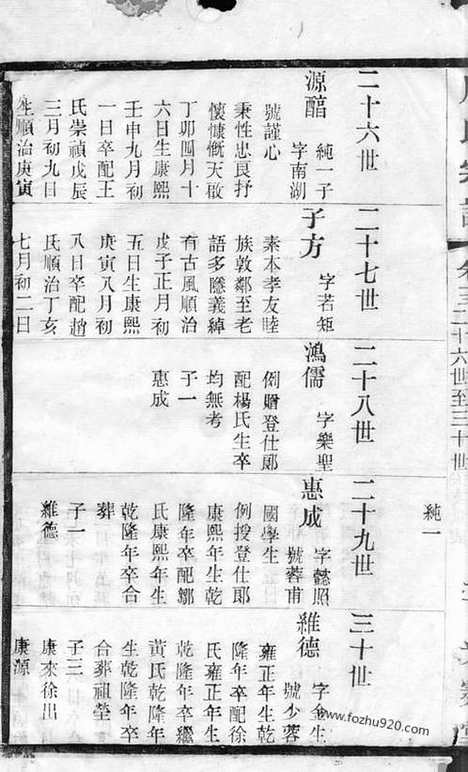 純一
二十六世
源醅 純一子
字南湖
號謹心
秉性忠良抒
懷慷慨天啟
丁卯四月十
六日生康熙
壬申九月初
一日卒配王
氏崇禎戊辰
三月初九日
生順治庚寅
二十七世
子方 字若矩
素本孝友睦
族敦鄰至老
語多隱義綽
有古風順治
戊子正月初
五日生康熙
庚寅八月初
八日卒配趙
氏順治丁亥
七月初二日
二十八世
鴻儒 字樂聖
例贈登仕郎
配楊氏生卒
均無考
子一
惠成
二十九世
惠成 字懿照
號蓉甫
國學生
例授登仕郎
康熙年生乾
隆年卒配鄒
氏康熙年生
乾隆年卒合
葬
子一
維德
三十世
維德 字金生
號少蓉
雍正年生乾
隆年卒配徐
氏雍正年生
乾隆年卒繼
黃氏乾隆年
生乾隆年卒
合葬祖塋
子三
康來徐出
康源
卷三二十六世至三十世
www.fozhu920.com